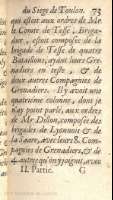 du Siege de Toulon. 73
qui estoit aux ordres de Mr
le Comte de Tessé, Briga-
dier, estoit composé de la
brigade de Tessé de quatre
Bataillons, ayant leurs Gre-
nadiers en teste, & de
deux autres Compagnies de
Grenadiers. Il y avoit une
quatriéme colonne, dont je
n'ay point parlé, aux ordres
de Mr Dillon, composée des
brigades de Lyonnois & de
la Sarre, avec leurs 8. Com-
pagnies de Grenadiers,
& autres qu'on y joignit, avec
II. Partie. G